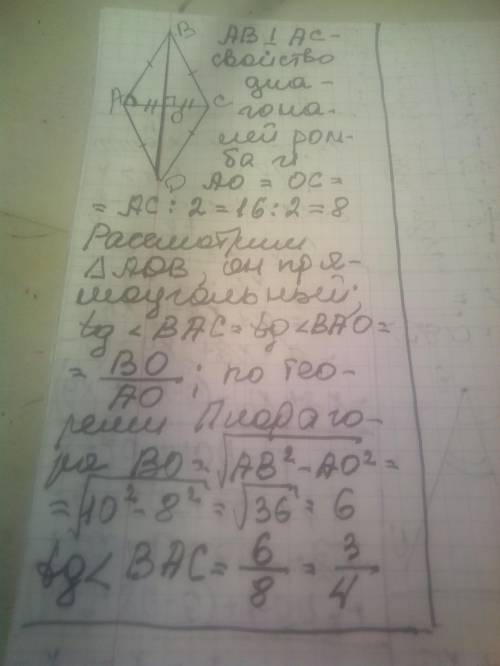 B
A
C
O
D
AB ⊥ AC-
свойство
диа-
гона-
лей ром-
ба и
AO = OC =
= AC : 2 = 16 : 2 = 8
Рассмотрим
△AOB, он пря-
моугольный;
tg < BAC = tg < BAO =
= BO/AO ; по тео-
реме Пифаго-
ра BO = √AB² - AO² =
= √10² - 8² = √36 = 6
tg < BAC = 6/8 = 3/4